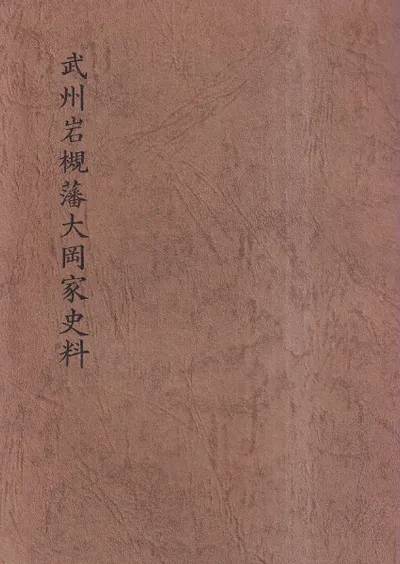 武州岩槻藩大岡家史料